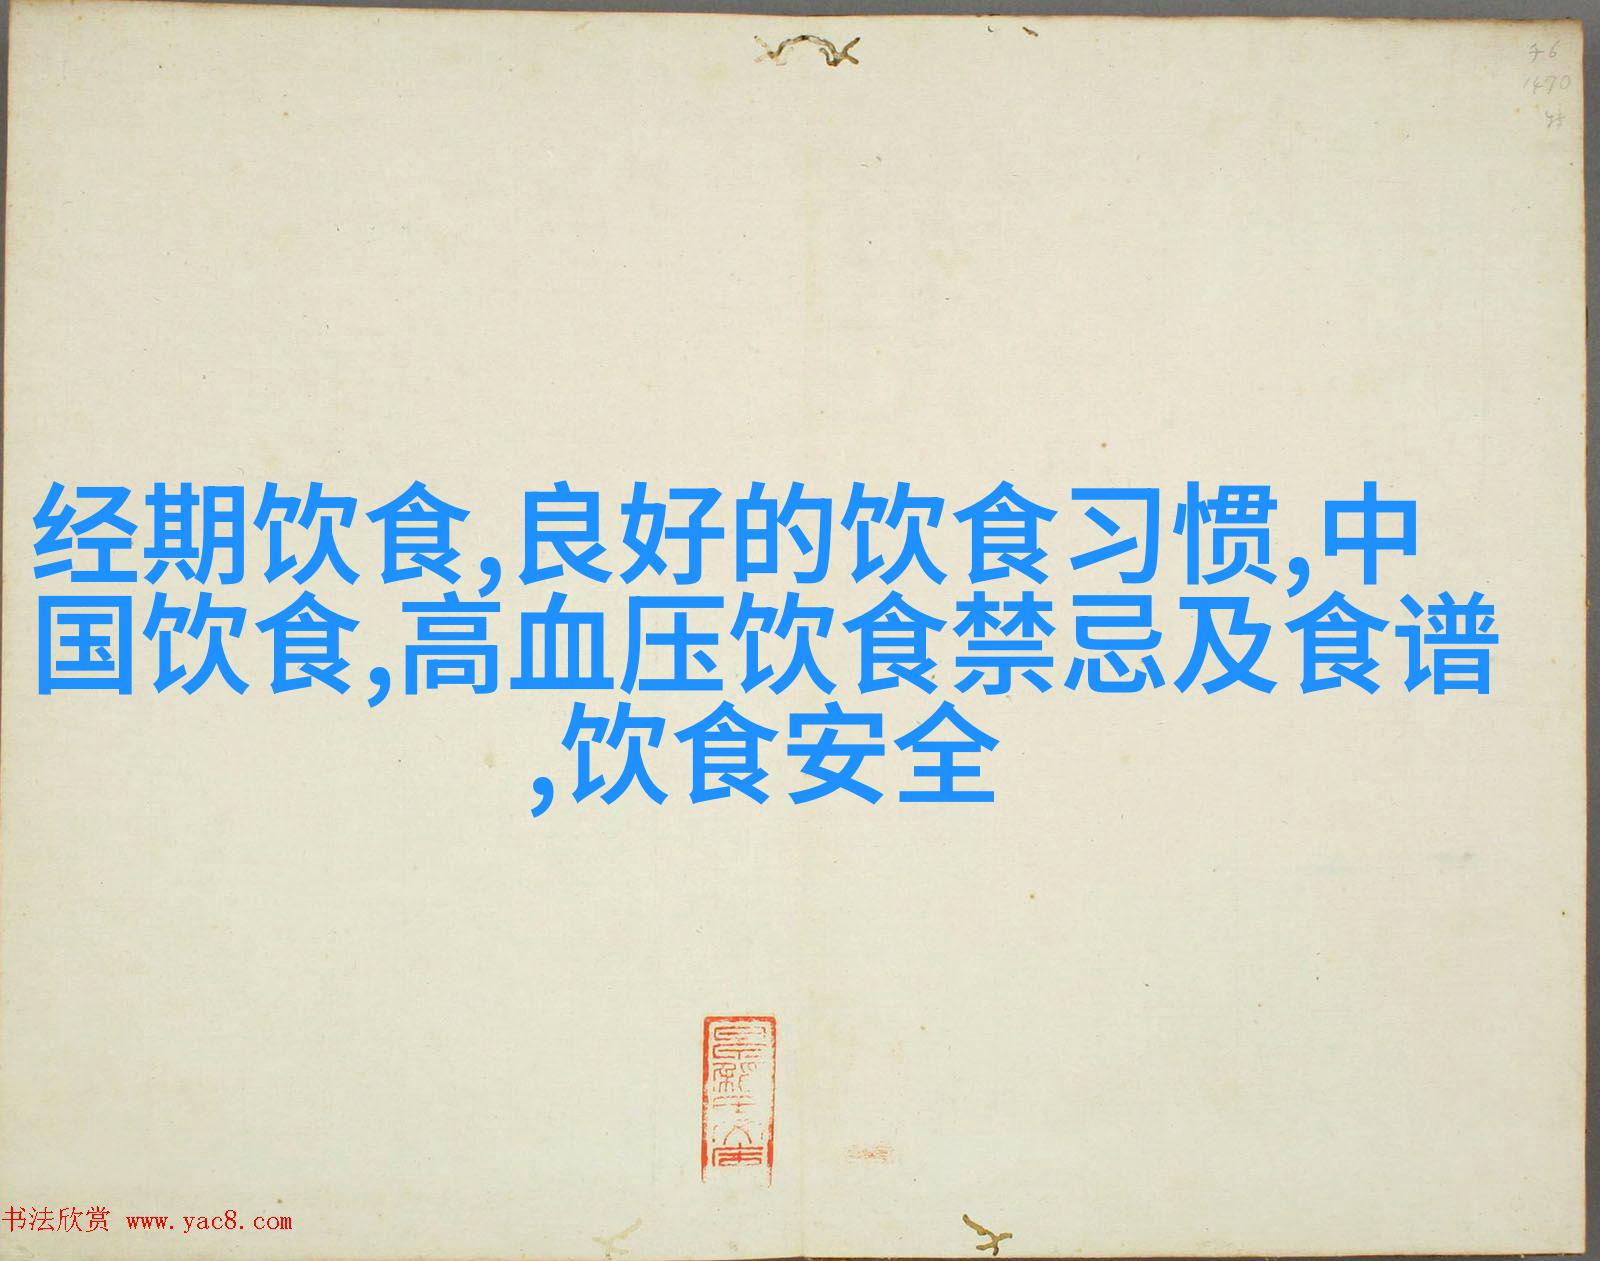 经期饮食,良好的饮食习惯,中
国饮食,高血压饮食禁忌及食谱
,饮食安全
书法欣赏 www.yac8.com